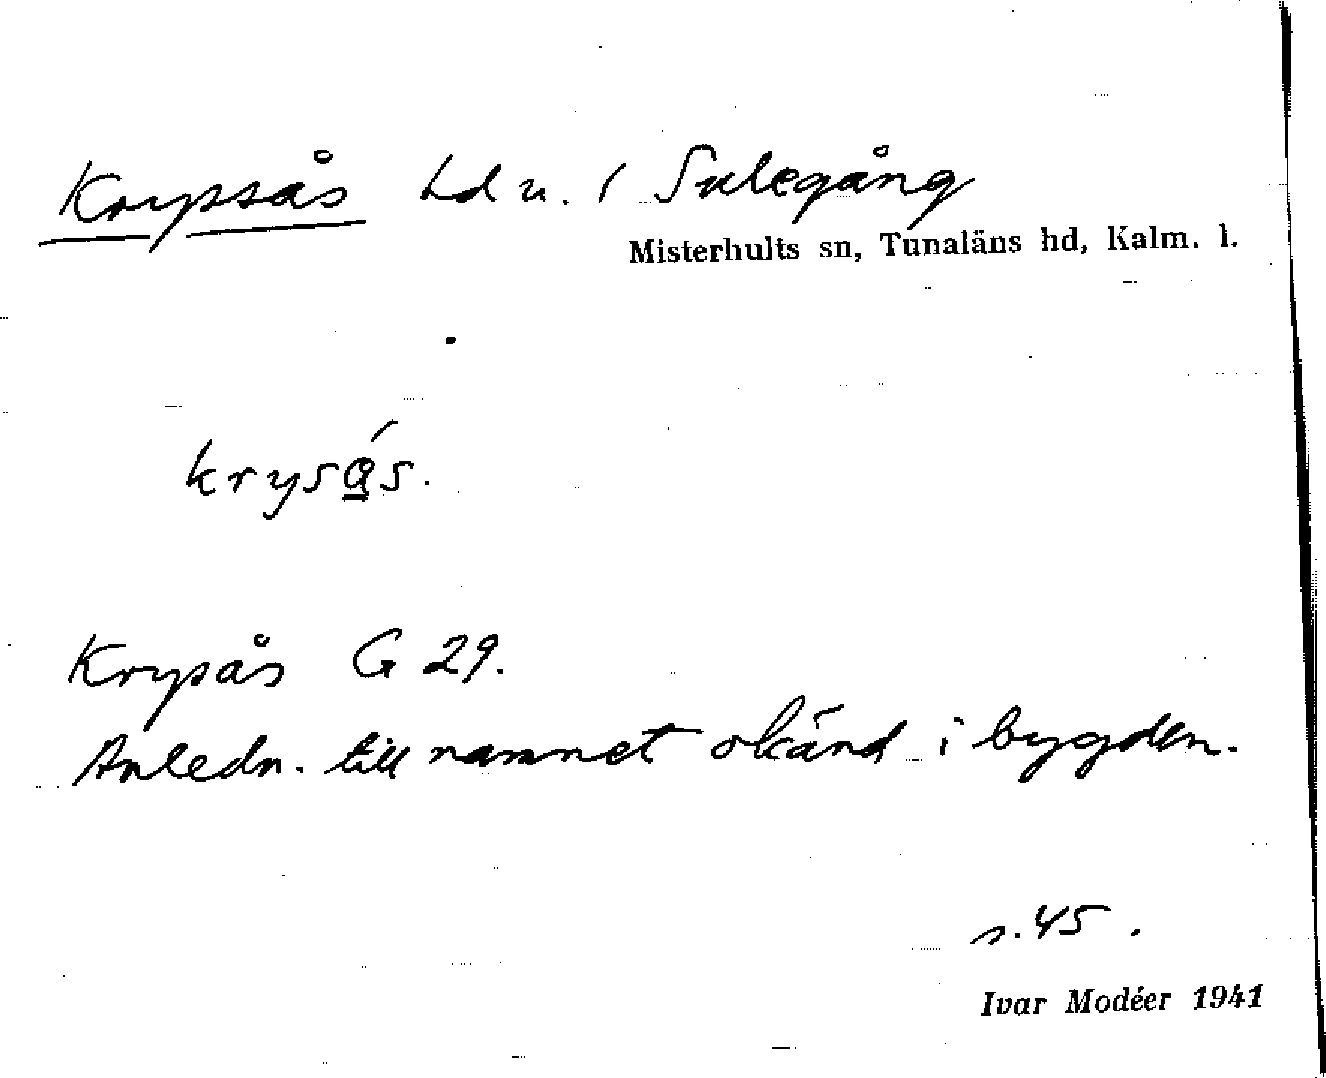 Kryssås hd u. / Sulegång
Misterhults sn, Tunaläns hd, Kalm. l.
krysås.
Krysås G 29.
Anledn. till namnet okänd i bygden.
s. 45.
Ivar Modéer 1941